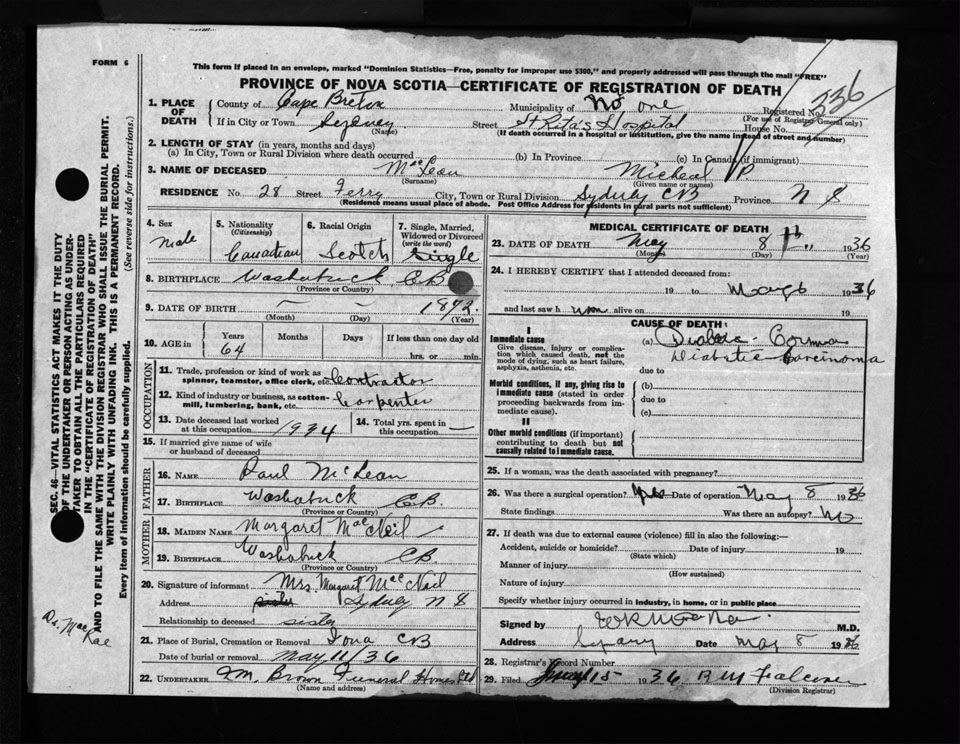 FORM 6
This form if placed in an envelope, marked "Dominion Statistics—Free, penalty for improper use $300," and properly addressed will pass through the mail "FREE"
PROVINCE OF NOVA SCOTIA—CERTIFICATE OF REGISTRATION OF DEATH
1. PLACE OF DEATH
County of Cape Breton Municipality of No one Registered No. 336
(For use of Registrar General only)
If in City or Town Sydney Street St Rita's Hospital House No.
(Name) (If death occurred in a hospital or institution, give the name instead of street and number)
2. LENGTH OF STAY (in years, months and days)
(a) In City, Town or Rural Division where death occurred (b) In Province (c) In Canada (if immigrant)
3. NAME OF DECEASED MacLean Micheal P.
(Surname) (Given name or names)
RESIDENCE No. 28 Street Ferry City, Town or Rural Division Sydney CB Province N S
(Residence means usual place of abode. Post Office Address for residents in rural parts not sufficient)
4. Sex Male
5. Nationality (Citizenship) Canadian
6. Racial Origin Scotch
7. Single, Married, Widowed or Divorced (write the word) Single
8. BIRTHPLACE Washabuck CB
(Province or Country)
9. DATE OF BIRTH 1872
(Month) (Day) (Year)
10. AGE in Years 64 Months Days If less than one day old hrs. or min.
OCCUPATION
11. Trade, profession or kind of work as spinner, teamster, office clerk, etc. Contractor
12. Kind of industry or business, as cotton-mill, lumbering, bank, etc. Carpenter
13. Date deceased last worked at this occupation 1934
14. Total yrs. spent in this occupation —
15. If married give name of wife or husband of deceased
FATHER
16. NAME Paul McLean
17. BIRTHPLACE Washabuck CB
(Province or Country)
MOTHER
18. MAIDEN NAME Margaret MacNeil
19. BIRTHPLACE Washabuck CB
(Province or Country)
20. Signature of informant Mrs. Margaret MacNeil
Address Sydney N S
Relationship to deceased sister
21. Place of Burial, Cremation or Removal Iona CB
Date of burial or removal May 11/36
22. UNDERTAKER M. Brown Funeral Home
(Name and address)
MEDICAL CERTIFICATE OF DEATH
23. DATE OF DEATH May 8th 1936
(Month) (Day) (Year)
24. I HEREBY CERTIFY that I attended deceased from:
19 to May 6 1936
and last saw h alive on 19
CAUSE OF DEATH
I
Immediate cause
Give disease, injury or complication which caused death, not the mode of dying, such as heart failure, asphyxia, asthenia, etc.
(a) Diabetic Coma
Diabetic Carcinoma
due to
Morbid conditions, if any, giving rise to immediate cause (stated in order proceeding backwards from immediate cause).
(b)
due to
(c)
II
Other morbid conditions (if important) contributing to death but not causally related to immediate cause.
25. If a woman, was the death associated with pregnancy?
26. Was there a surgical operation? yes Date of operation May 8 1936
State findings Was there an autopsy? No
27. If death was due to external causes (violence) fill in also the following:—
Accident, suicide or homicide? Date of injury 19
(State which)
Manner of injury
(How sustained)
Nature of injury
Specify whether injury occurred in industry, in home, or in public place
Signed by M.D.
Address Date May 8 1936
28. Registrar's Record Number
29. Filed May 15 1936
(Division Registrar)
SEC. 46—VITAL STATISTICS ACT MAKES IT THE DUTY
OF THE UNDERTAKER OR PERSON ACTING AS UNDER-
TAKER TO OBTAIN ALL THE PARTICULARS REQUIRED
IN THE "CERTIFICATE OF REGISTRATION OF DEATH"
AND TO FILE THE SAME WITH THE DIVISION REGISTRAR WHO SHALL ISSUE THE BURIAL PERMIT.
WRITE PLAINLY WITH UNFADING INK. THIS IS A PERMANENT RECORD.
Every item of information should be carefully supplied. (See reverse side for instructions.)
Dr. MacRae